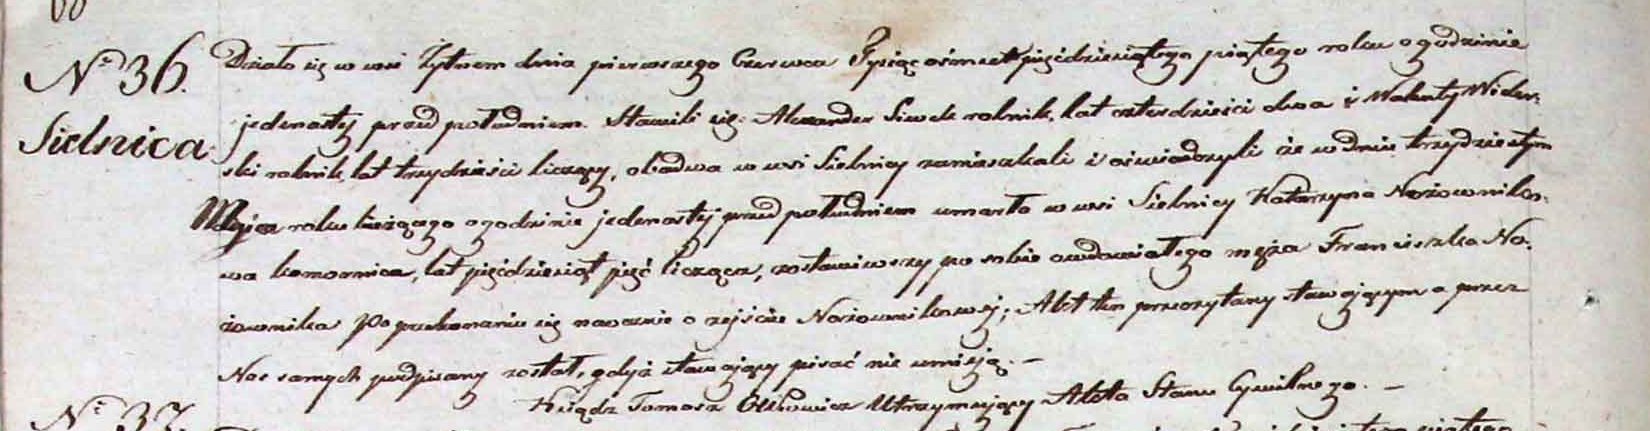 No 36.
Sielnica
Działo się we wsi Żytnem dnia pierwszego Czerwca Tysiąc ośmset pięćdziesiątego piątego roku o godzinie
jedenastej przed południem. Stawili się: Alexander Siwek rolnik, lat czterdzieści dwa i Walenty Wider-
ski rolnik, lat trzydzieści liczący, obadwa we wsi Sielnicy zamieszkali i oświadczyli że w dniu trzydziestym
Maja roku bieżącego o godzinie jedenastej przed południem umarła we wsi Sielnicy Katarzyna Nożowniko-
wa komornica, lat pięćdziesiąt pięć licząca, zostawiwszy po sobie owdowiałego męża Franciszka No-
żownika. Po przekonaniu się naocznie o zejściu Nożownikowej; Akt ten przeczytany stawającym a przez
Nas samych podpisany został, gdyż stawający pisać nie umieją. —
Ksiądz Tomasz Utrzymujący Akta Stanu Cywilnego. —
No 37.
piątego